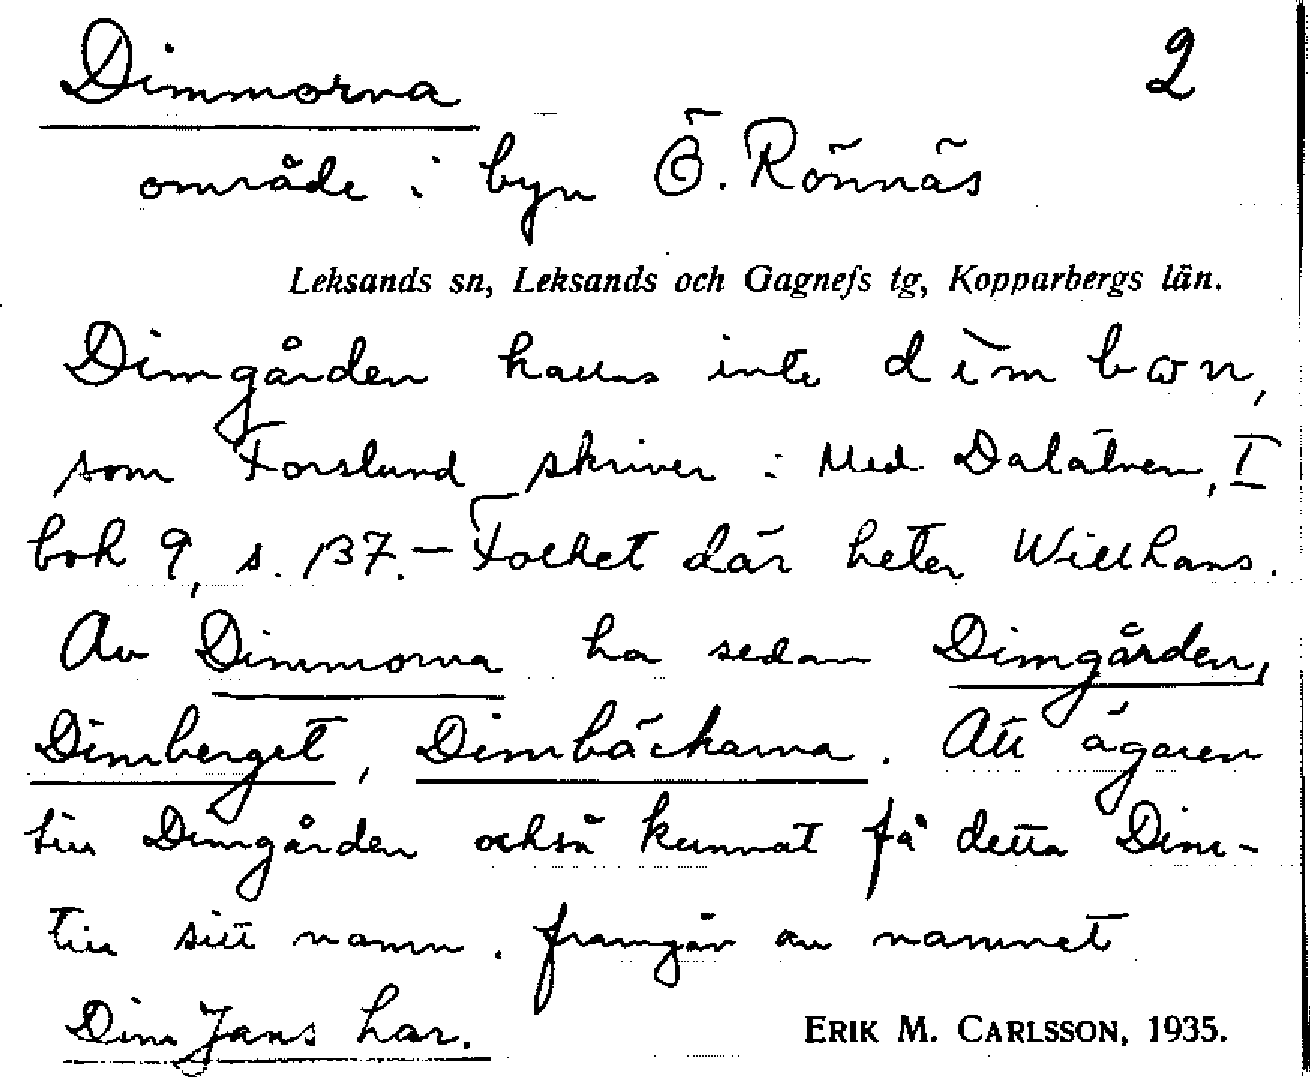 Dimmorna 2
område i byn Ö. Rönnäs
Leksands sn, Leksands och Gagnefs tg, Kopparbergs län.
Dimgården kallas inte
som Forslund skriver i Med Dalälven, I
bok 9, s. 137. — Folket där heter Willhans.
Av Dimmorna ha sedan Dimgården,
Dimberget, Dimbäckarna. Att ägaren
till Dimgården också kunnat få detta Dim-
till sitt namn. framgår av namnet
Dim Jans har.
ERIK M. CARLSSON, 1935.